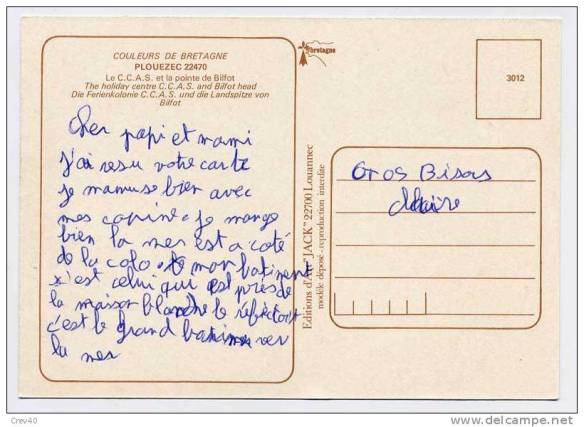 COULEURS DE BRETAGNE
PLOUEZEC 22470
Le C.C.A.S. et la pointe de Bilfot
The holiday centre C.C.A.S. and Bilfot head
Die Ferienkolonie C.C.A.S. und die Landspitze von
Bilfot
cher papi et mami
j'ai resu votre carte
je mamuse bien avec
mes copine. je mange
bien la mer est a coté
de la colo. mon batiment
c'est celui qui est près de
la maison blanche le réfectoir
c'est le grand batimen ver
la mer
Editions d'Art "JACK" 22700 Louannec
modèle déposé - reproduction interdite
bretagne
3012
Gros Bisous
Crev40
delcampe.net